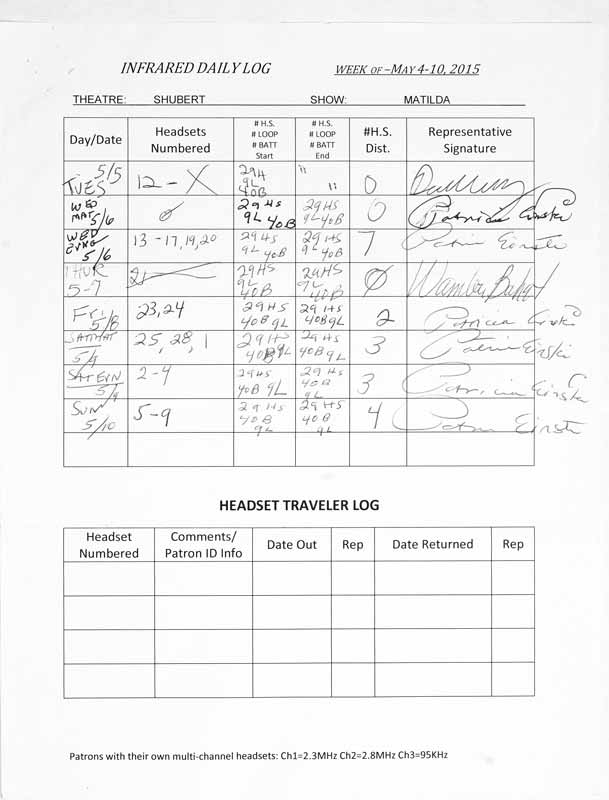 INFRARED DAILY LOG WEEK OF –MAY 4-10, 2015
THEATRE: SHUBERT SHOW: MATILDA
Day/Date Headsets Numbered # H.S. # LOOP # BATT Start # H.S. # LOOP # BATT End #H.S. Dist. Representative Signature
TUES 5/5 12 – X 29H 9L 40B " " 0
WED MAT 5/6 0 29HS 9L 40B 29HS 9L 40B 0 Patricia Einski
WED EVNG 5/6 13-17, 19, 20 29HS 9L 40B 29HS 9L 40B 7
THUR 5-7 21 29HS 9L 40B 29HS 9L 40B 0
Fri 5/8 23, 24 29HS 40B 9L 29HS 40B 9L 2 Patricia
SAT MAT 5/9 25, 28, 1 29HS 40B 9L 29HS 40B 9L 3
SAT EVN 5/9 2-4 29HS 40B 9L 29HS 40B 9L 3 Patricia
SUN 5/10 5-9 29HS 40B 9L 29HS 40B 9L 4
HEADSET TRAVELER LOG
Headset Numbered Comments/ Patron ID Info Date Out Rep Date Returned Rep
Patrons with their own multi-channel headsets: Ch1=2.3MHz Ch2=2.8MHz Ch3=95KHz